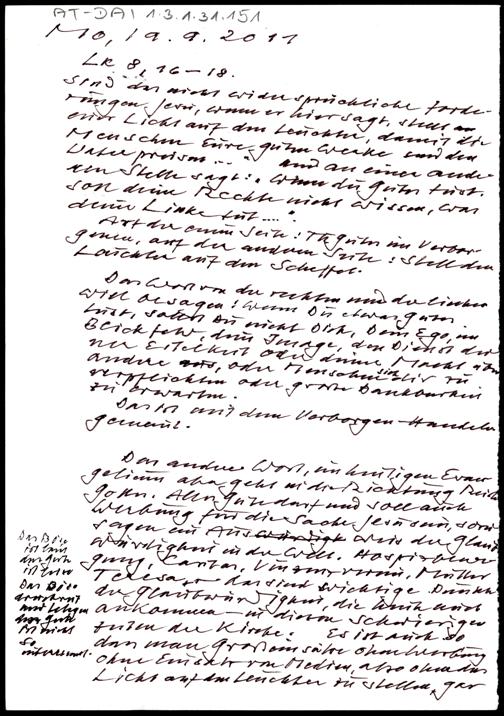 AT-DAI 1.3.1.31.151
Mo, 19.9.2011
Lk 8, 16-18.
Sind das nicht widersprüchliche Forde-
rungen Jesu, wenn er hier sagt, stellt
euer Licht auf den Leuchter, damit die
Menschen Eure guten Werke und den
Vater preisen..." und an einer ande-
ren Stelle sagt: "Wenn du Gutes tust,
soll deine Rechte nicht wissen, was
deine Linke tut....".
Auf der einen Seite: Tu Gutes im Verbor-
genen, auf der anderen Seite: Stell den
Leuchter auf den Scheffel.
Das Wort von der rechten und der linken
will besagen: Wenn Du etwas Gutes
tust, sollst Du nicht Dich, Dein Ego, im
Blickfeld, dein Image, den Dienst dei-
ner Eitelkeit oder deine Macht über
andere, oder Menschen sich dir zu
verpflichten oder große Dankbarkeit
zu erwarten.
Das ist mit dem Verborgen-Handeln
gemeint.
Das andere Wort, im heutigen Evan-
gelium aber geht in die Richtung Reich
Gottes. Alles Gute darf und soll auch
Werbung für die Sache Jesu sein, sozu-
sagen ein Ausweis der Glaub-
würdigkeit in der Welt. Hospizbewe-
gung, Caritas, Vinzenzverein, Mutter
Teresa, das sind wichtige
der Glaubwürdigkeit, die heute auch
ankommen - in diesen schwierigen
Zeiten der Kirche. Es ist auch so
dass man ohne Werbung
ohne Einsatz von Medien, also ohne das
Licht auf den Leuchter zu stellen, gar
Das Böse
ist laut
das Gute
ist leise
Das Böse
das Gute
ist nicht
so
interessant.